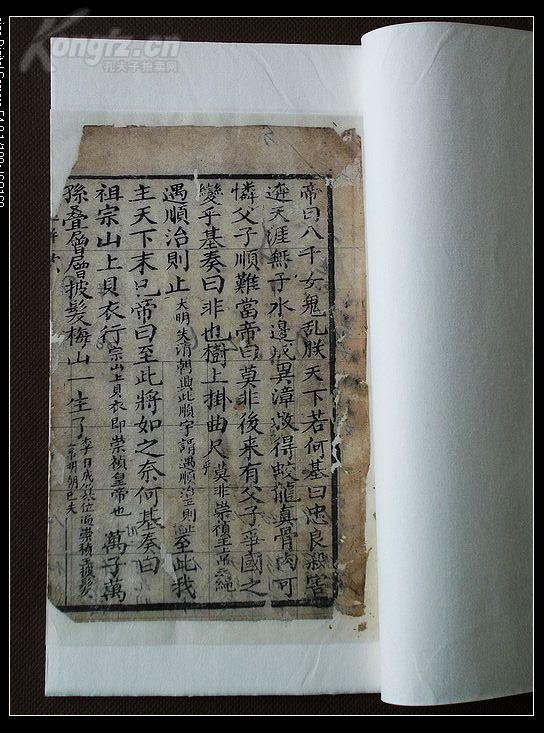 Kongfz.cn
孔夫子拍卖网
帝曰八千女鬼乱朕天下若何基曰忠良殺害
遊天涯無子水邊成異漳毀得蛟龍真骨肉可
憐父子順難當帝曰莫非後来有父子爭國之
變乎基奏曰非也樹上掛曲尺莫非崇禎王吊之繩乎
遇順治則止大明失清朝興此順字謂遇順治王則止至此我
主天下末已帝曰至此將如之奈何基奏曰
祖宗山上貝衣行宗山上貝衣即崇禎皇帝也萬子萬
孫叠層層披髮梅山一生了李自成簒位逼崇禎王披髮